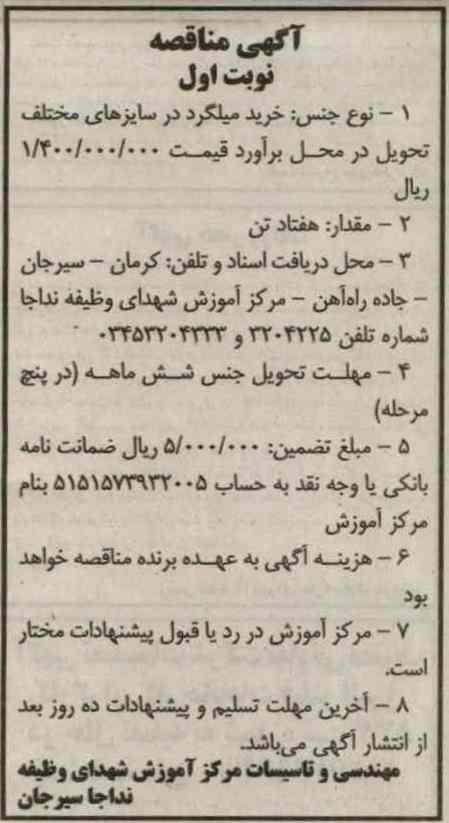 آگهی مناقصه
نوبت اول
۱ - نوع جنس: خرید میلگرد در سایزهای مختلف
تحویل در محل برآورد قیمت ۱/۴۰۰/۰۰۰/۰۰۰
ریال
۲ - مقدار: هفتاد تن
۳ - محل دریافت اسناد و تلفن: کرمان - سیرجان
- جاده راه‌آهن - مرکز آموزش شهدای وظیفه نداجا
شماره تلفن ۳۲۰۴۲۲۵ و ۰۳۴۵۳۲۰۴۳۳۳
۴ - مهلت تحویل جنس شش ماهه (در پنج
مرحله)
۵ - مبلغ تضمین: ۵/۰۰۰/۰۰۰ ریال ضمانت نامه
بانکی یا وجه نقد به حساب ۵۱۵۱۵۷۳۹۳۲۰۰۵ بنام
مرکز آموزش
۶ - هزینه آگهی به عهده برنده مناقصه خواهد
بود
۷ - مرکز آموزش در رد یا قبول پیشنهادات مختار
است.
۸ - آخرین مهلت تسلیم و پیشنهادات ده روز بعد
از انتشار آگهی می‌باشد.
مهندسی و تاسیسات مرکز آموزش شهدای وظیفه
نداجا سیرجان